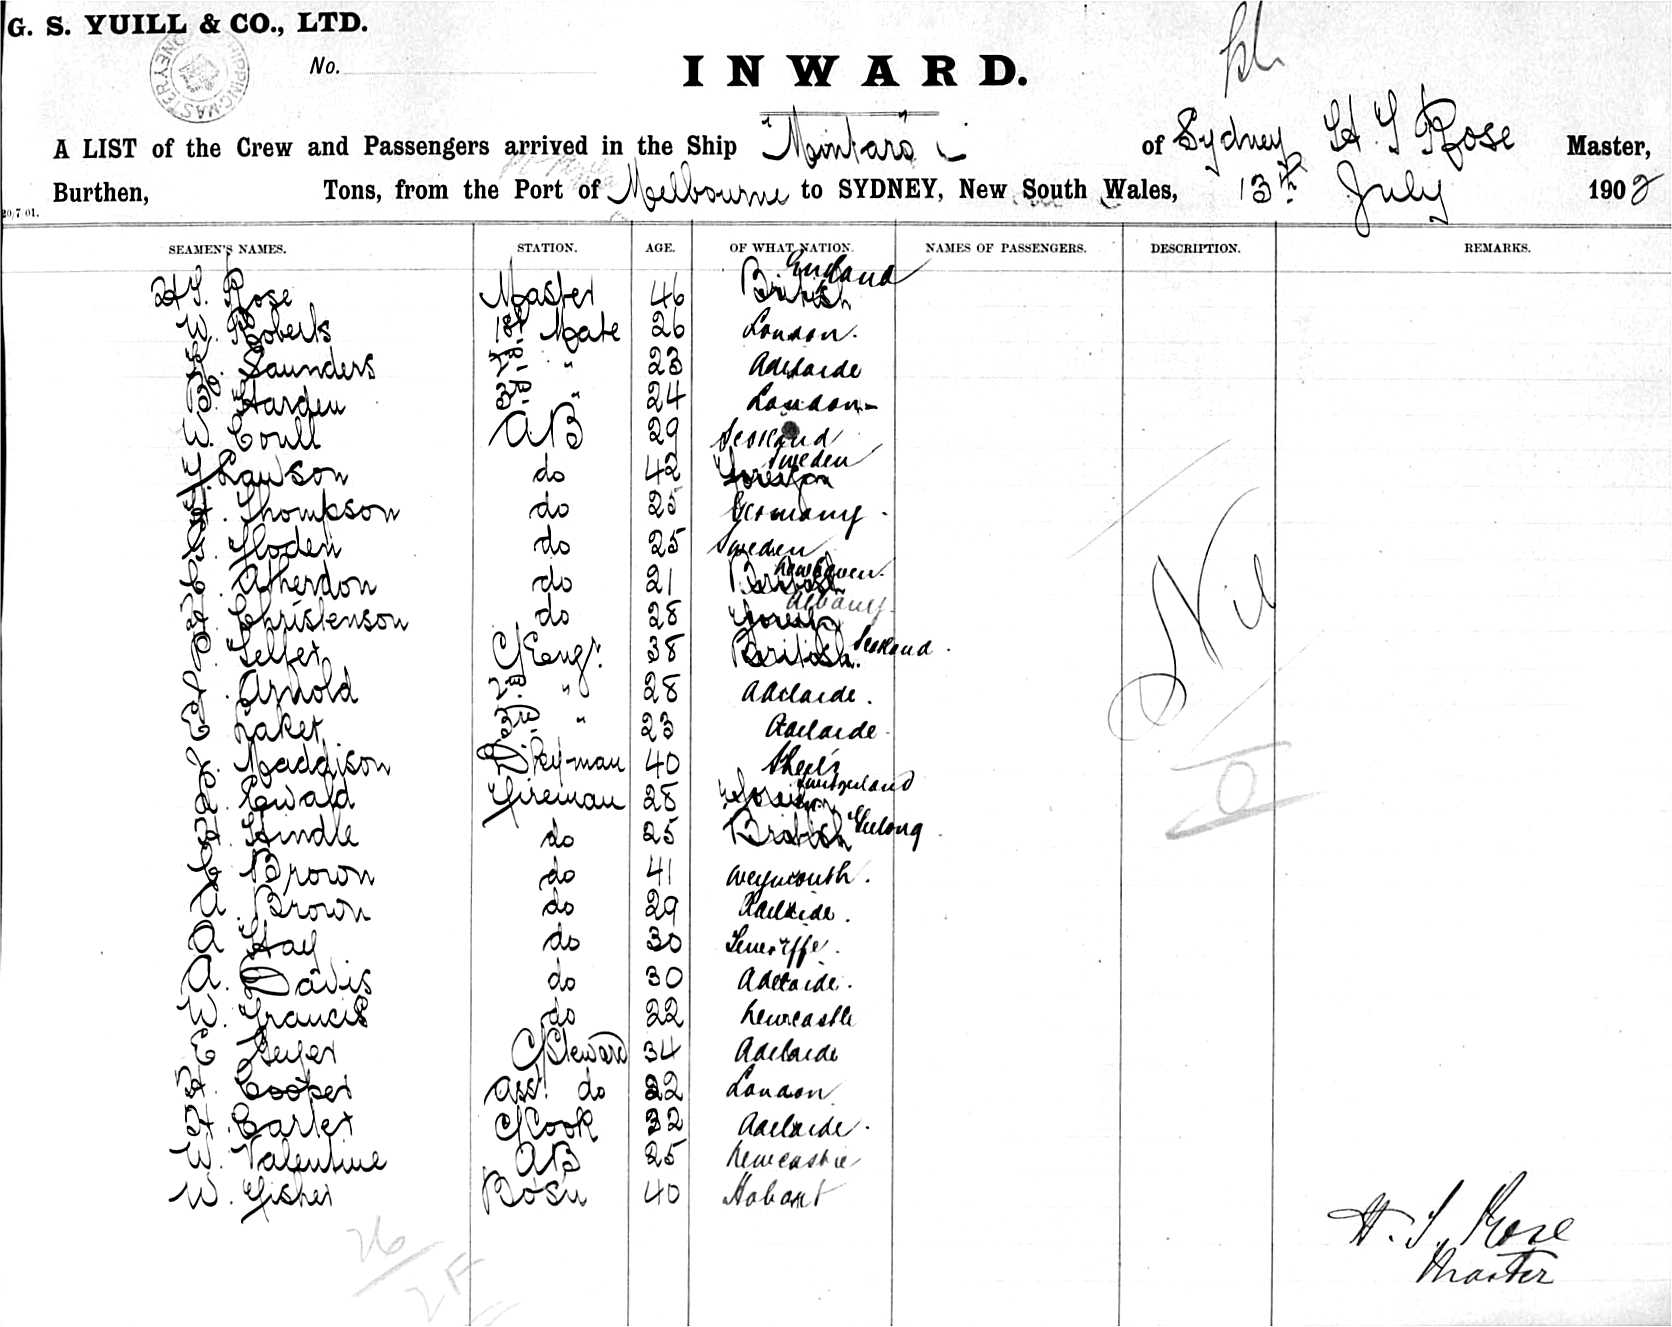 G. S. YUILL & CO., LTD.
No.
INWARD.
A LIST of the Crew and Passengers arrived in the Ship "Mintaro" of Sydney H S Rose Master,
Burthen, Tons, from the Port of Melbourne to SYDNEY, New South Wales, 13th July 1902
20/7/01.
SEAMEN'S NAMES. STATION. AGE. OF WHAT NATION. NAMES OF PASSENGERS. DESCRIPTION. REMARKS.
H S. Rose Master 46 British England
W. Roberts 1st Mate 26 London.
Saunders 2nd " 23 Adelaide
B. Harden 3rd " 24 London
W. Coull AB 29 Scotland
Lawson do 42 Foreign Sweden
H. Thompson do 25 Germany
Floden do 25 Sweden
Atherdon do 21 British Newhaven.
H. Christenson do 28 Foreign Albany
Telfer C/Eng. 38 British. Scotland.
Arnold 2nd " 28 Adelaide.
E Laker 3rd " 23 Adelaide
J. Maddison D'key-man 40 Shiels
Ewald Fireman 28 Foreign Switzerland
H. Hindle do 25 British Geelong
C. Brown do 41 Weymouth.
A. Brown do 29 Adelaide.
A Hay do 30 Teneriffe.
A. Davis do 30 Adelaide.
W. Francis do 22 Newcastle
E Geyer C/Steward 34 Adelaide
H. Cooper Asst. do 22 London
H. Carter C/Cook 32 Adelaide.
W. Valentine AB 25 Newcastle
W. Fisher Bosn 40 Hobart
Nil
0
26
2F
H. S. Rose
Master